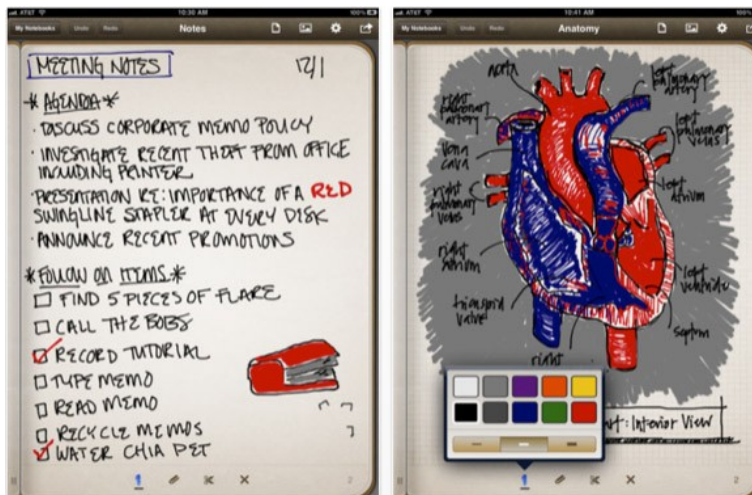 AT&T 10:30 AM 100%
My Notebooks Undo Redo Notes
MEETING NOTES 12/1
* AGENDA *
· DISCUSS CORPORATE MEMO POLICY
· INVESTIGATE RECENT THEFT FROM OFFICE
INCLUDING PRINTER
· PRESENTATION RE: IMPORTANCE OF A RED
SWINGLINE STAPLER AT EVERY DESK
· ANNOUNCE RECENT PROMOTIONS
* FOLLOW ON ITEMS *
FIND 5 PIECES OF FLARE
CALL THE BOBS
RECORD TUTORIAL
TYPE MEMO
READ MEMO
RECYCLE MEMOS
WATER CHIA PET
2
AT&T 10:41 AM 100%
My Notebooks Undo Redo Anatomy
aorta
left
pulmonary
artery
right
pulmonary
artery
left
pulmonary
veins
vena
cava
right
pulmonary
veins
left
atrium
right
atrium
left
ventricle
tricuspid
valve
septum
right
art: Interior View
2